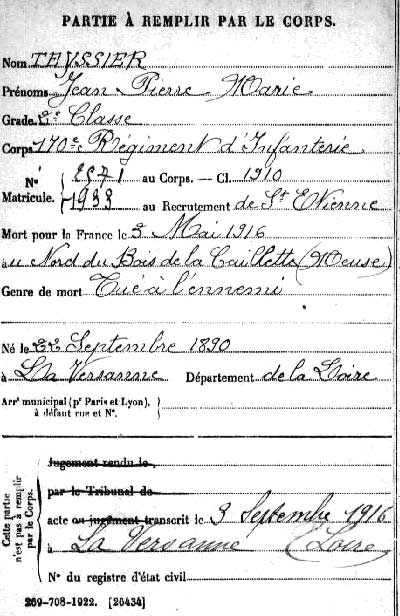 PARTIE À REMPLIR PAR LE CORPS.
Nom TEYSSIER
Prénoms Jean Pierre Marie
Grade 2e Classe
Corps 170e Régiment d'Infanterie
N° 2571 au Corps. — Cl. 1910
Matricule. 1933 au Recrutement de St Etienne
Mort pour la France le 3 Mai 1916
au Nord du Bois de la Caillette (Meuse)
Genre de mort Tué à l'ennemi
Né le 22 Septembre 1890
à La Versanne Département de la Loire
Arrt municipal (pr Paris et Lyon),
à défaut rue et N°.
Cette partie
n'est pas à remplir
par le Corps.
Jugement rendu le
par le Tribunal de
acte ou jugement transcrit le 3 Septembre 1916
à La Versanne (Loire)
N° du registre d'état civil
269-708-1922. [26434]